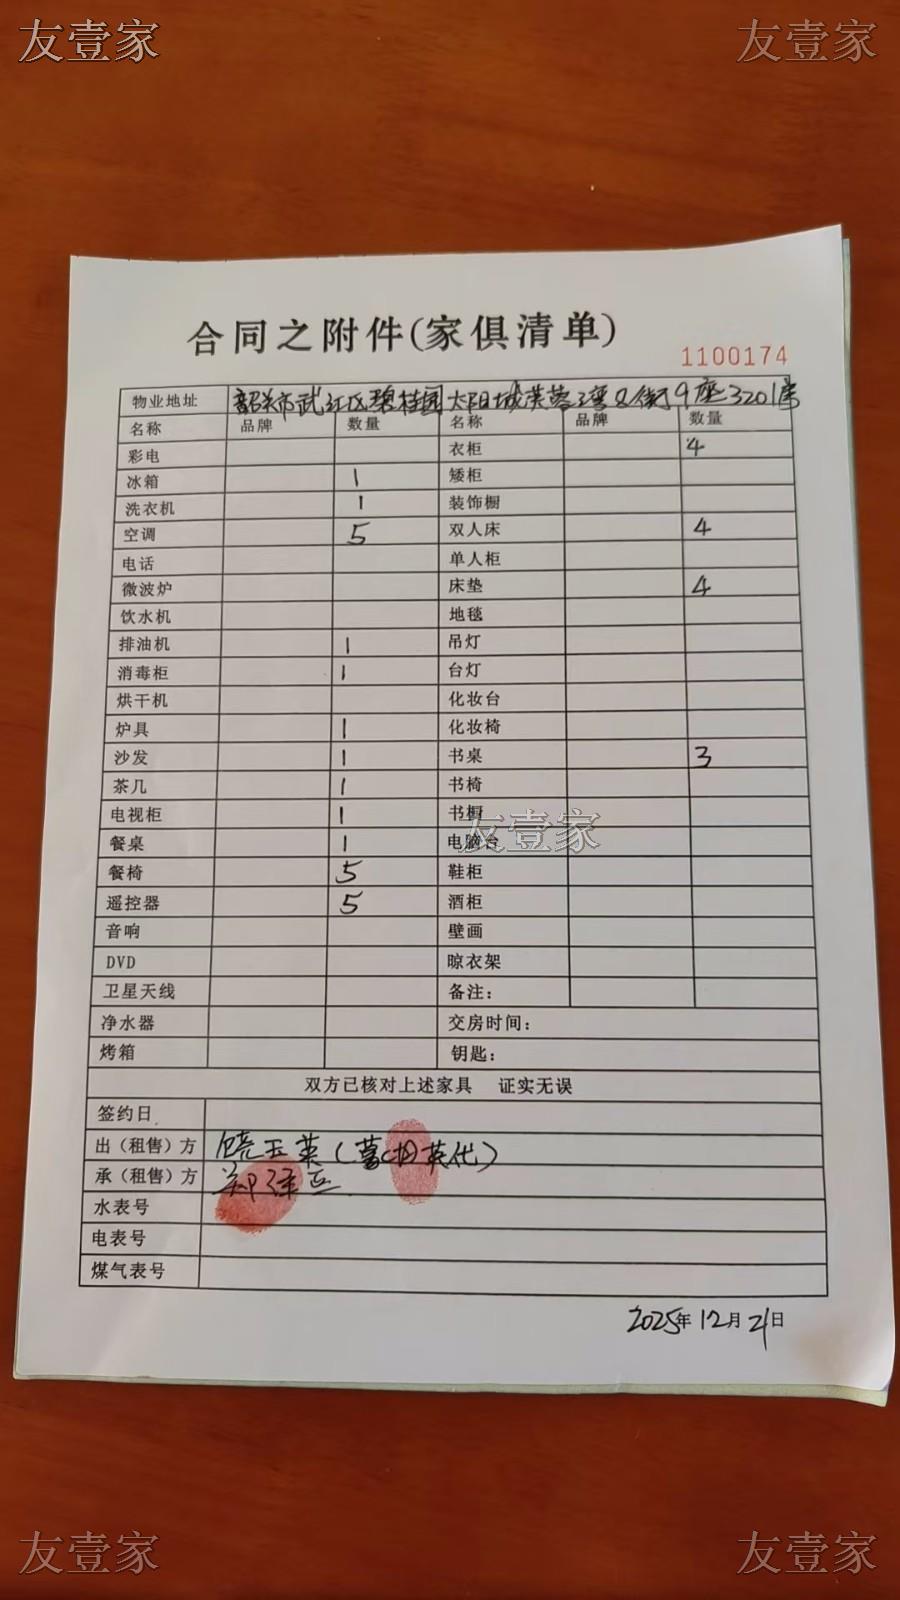 友壹家 友壹家
合同之附件(家俱清单)
1100174
物业地址 韶关市武江区碧桂园太阳城芙蓉湾2街9座3201房
名称 品牌 数量 名称 品牌 数量
彩电 衣柜 4
冰箱 1 矮柜
洗衣机 1 装饰橱
空调 5 双人床 4
电话 单人柜
微波炉 床垫 4
饮水机 地毯
排油机 1 吊灯
消毒柜 1 台灯
烘干机 化妆台
炉具 1 化妆椅
沙发 1 书桌 3
茶几 1 书椅
电视柜 1 书橱
友壹家
餐桌 1 电脑台
餐椅 5 鞋柜
遥控器 5 酒柜
音响 壁画
DVD 晾衣架
卫星天线 备注:
净水器 交房时间:
烤箱 钥匙:
双方已核对上述家具 证实无误
签约日
出（租售）方 饶玉英 ( 英代)
承（租售）方 郑
水表号
电表号
煤气表号
2025年12月21日
友壹家 友壹家